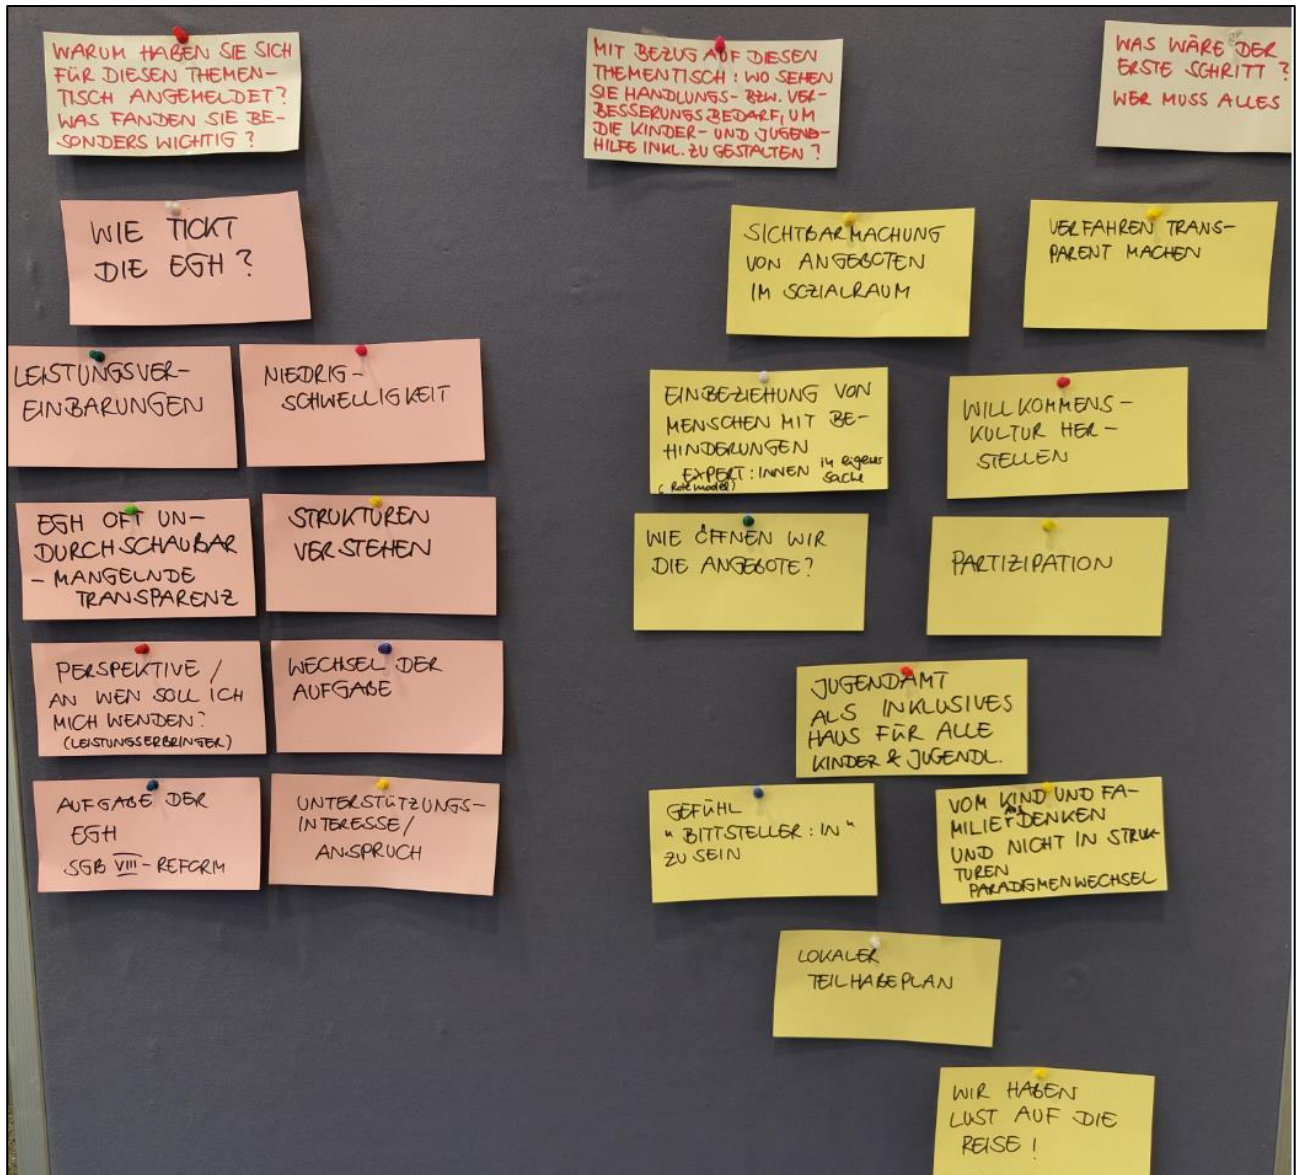 WARUM HABEN SIE SICH
FÜR DIESEN THEMEN-
TISCH ANGEMELDET?
WAS FANDEN SIE BE-
SONDERS WICHTIG?
WIE TICKT
DIE EGH?
LEISTUNGSVER-
EINBARUNGEN
NIEDRIG-
SCHWELLIGKEIT
EGH OFT UN-
DURCHSCHAUBAR
- MANGELNDE
TRANSPARENZ
STRUKTUREN
VERSTEHEN
PERSPEKTIVE /
AN WEN SOLL ICH
MICH WENDEN?
(LEISTUNGSERBRINGER)
WECHSEL DER
AUFGABE
AUFGABE DER
EGH
SGB VIII-REFORM
UNTERSTÜTZUNGS-
INTERESSE/
ANSPRUCH
MIT BEZUG AUF DIESEN
THEMENTISCH: WO SEHEN
SIE HANDLUNGS- BZW. VER-
BESSERUNGSBEDARF, UM
DIE KINDER- UND JUGEND-
HILFE INKL. ZU GESTALTEN?
SICHTBARMACHUNG
VON ANGEBOTEN
IM SOZIALRAUM
VERFAHREN TRANS-
PARENT MACHEN
EINBEZIEHUNG VON
MENSCHEN MIT BE-
HINDERUNGEN
EXPERT:INNEN in eigener Sache
(Rolemodel)
WILLKOMMENS-
KULTUR HER-
STELLEN
WIE ÖFFNEN WIR
DIE ANGEBOTE?
PARTIZIPATION
JUGENDAMT
ALS INKLUSIVES
HAUS FÜR ALLE
KINDER & JUGENDL.
GEFÜHL
"BITTSTELLER:IN"
ZU SEIN
VOM KIND UND FA-
MILIE AUS DENKEN
UND NICHT IN STRUK-
TUREN
PARADIGMENWECHSEL
LOKALER
TEILHABEPLAN
WIR HABEN
LUST AUF DIE
REISE!
WAS WÄRE DER
ERSTE SCHRITT?
WER MUSS ALLES